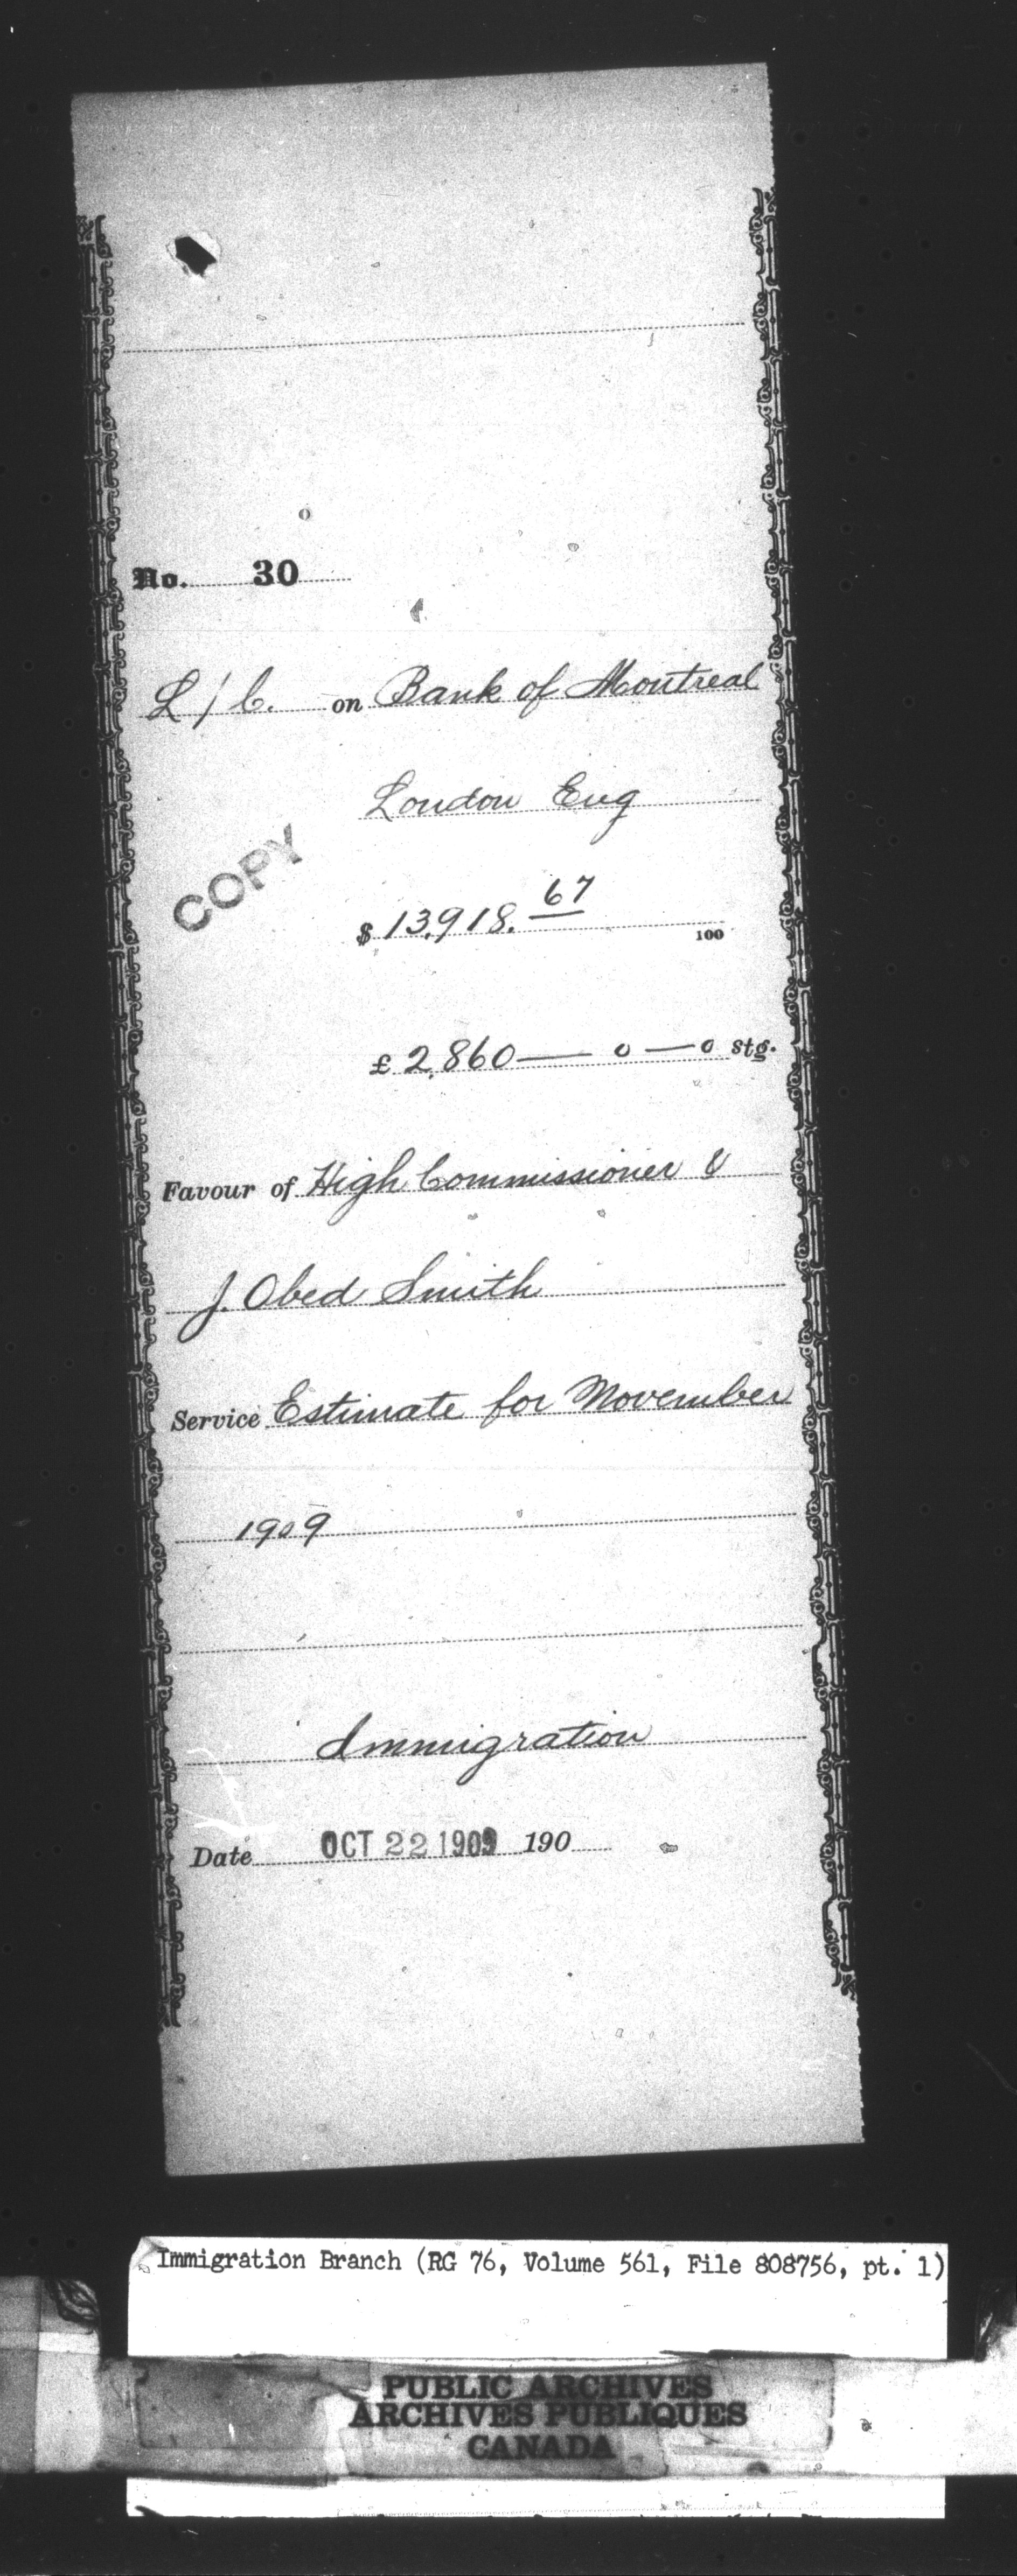 No. 30
L/C. on Bank of Montreal
London Eng
COPY
$ 13,918. 67
100
£ 2,860 — 0 — 0 stg.
Favour of High Commissioner &
J. Obed Smith
Service Estimate for November
1909
Immigration
Date OCT 22 1909 190
Immigration Branch (RG 76, Volume 561, File 808756, pt. 1)
PUBLIC ARCHIVES
ARCHIVES PUBLIQUES
CANADA